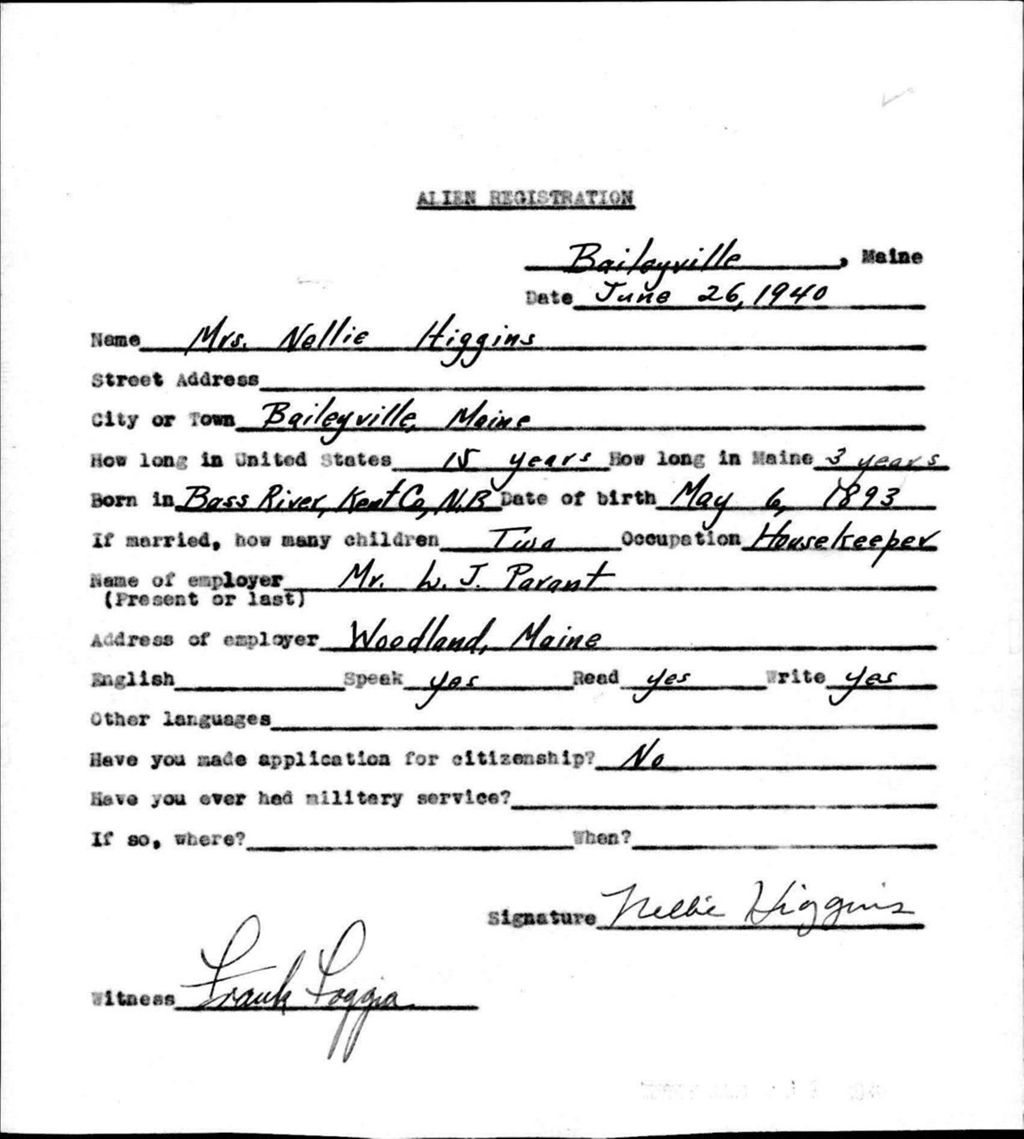 ALIEN REGISTRATION
Baileyville, Maine
Date June 26, 1940
Name Mrs. Nellie Higgins
Street Address
City or Town Baileyville, Maine
How long in United States 15 years How long in Maine 3 years
Born in Bass River, Kent Co, N.B Date of birth May 6, 1893
If married, how many children Two Occupation Housekeeper
Name of employer Mr. W. J. Parant
(Present or last)
Address of employer Woodland, Maine
English Speak yes Read yes Write yes
Other languages
Have you made application for citizenship? No
Have you ever had military service?
If so, where? When?
Signature Nellie Higgins
Witness Frank Foggia